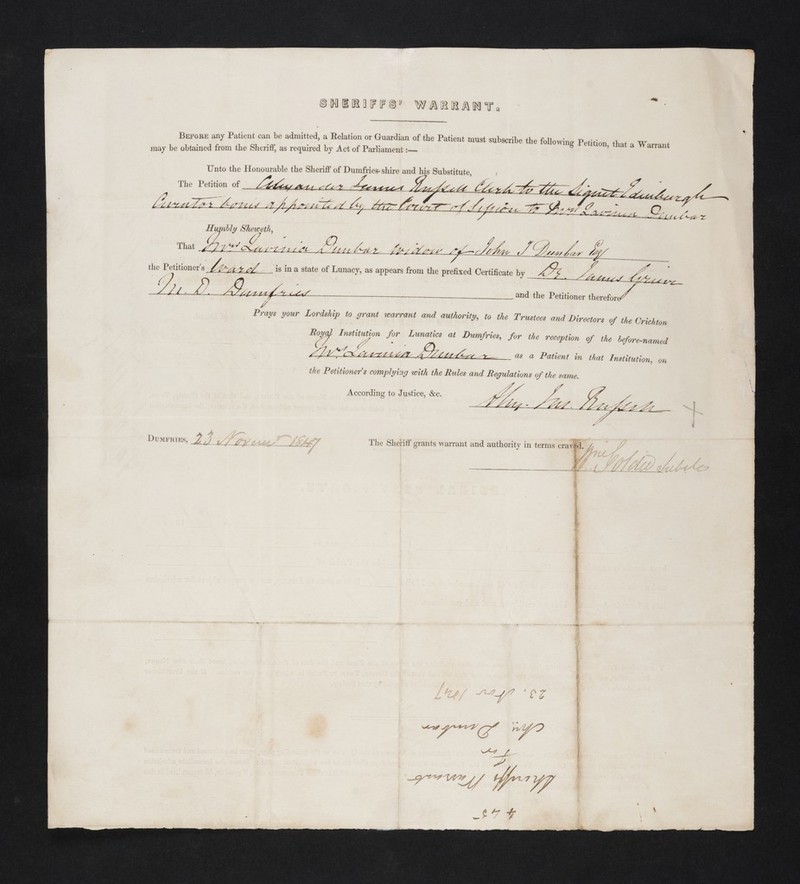 SHERIFFS' WARRANT.
BEFORE any Patient can be admitted, a Relation or Guardian of the Patient must subscribe the following Petition, that a Warrant
may be obtained from the Sheriff, as required by Act of Parliament:—
Unto the Honourable the Sheriff of Dumfries-shire and his Substitute,
The Petition of Alexander James Russell Clerk to the Signet Edinburgh
Curator bonis appointed by the Court of Session to Mrs Lavinia Dunbar
Humbly Sheweth,
That Mrs Lavinia Dunbar Widow of John J Dunbar Esq
the Petitioner's Ward is in a state of Lunacy, as appears from the prefixed Certificate by Dr. James Grieve
M. D. Dumfries and the Petitioner therefore
Prays your Lordship to grant warrant and authority, to the Trustees and Directors of the Crichton
Royal Institution for Lunatics at Dumfries, for the reception of the before-named
Mrs Lavinia Dunbar as a Patient in that Institution, on
the Petitioner's complying with the Rules and Regulations of the same.
According to Justice, &c.
Alexr. Jas. Russell
DUMFRIES, 23 Novemr 1847 The Sheriff grants warrant and authority in terms craved.
23. Nov 1847
Mrs Dunbar
for
Sheriffs Warrant